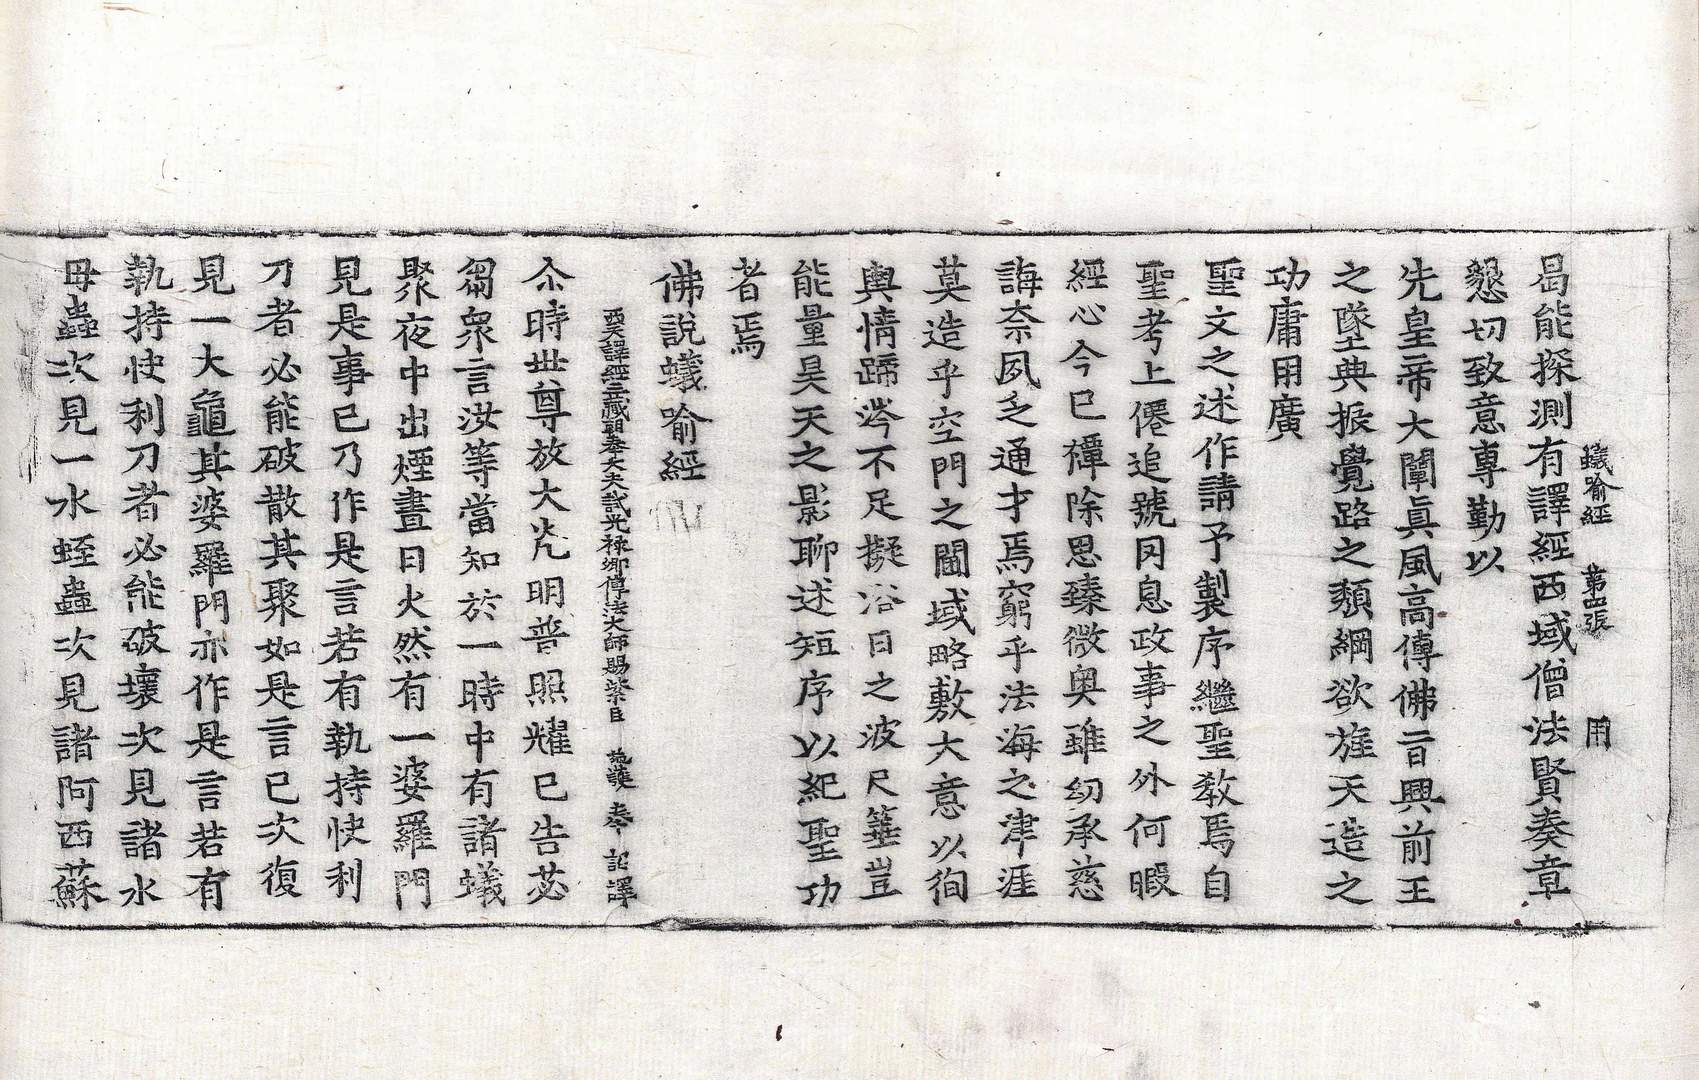 蟻喻經 第四張 用
曷能探測有譯經西域僧法賢奏章
懇切致意專勤以
先皇帝大闡眞風高傳佛旨興前王
之墜典振覺路之頹綱欲旌天造之
功庸用廣
聖文之述作請予製序繼聖教焉自
聖考上僊追號罔息政事之外何暇
經心今已禫除思臻微奧雖幼承慈
誨奈夙乏通才焉窮乎法海之津涯
莫造乎空門之閫域略敷大意以徇
輿情蹄涔不足擬浴日之波尺箠豈
能量昊天之影聊述短序以紀聖功
者焉
佛說蟻喻經
西天譯經三藏朝奉大夫試光祿卿傳法大師賜紫臣 施護 奉 詔譯
尒時世尊放大光明普照耀已告苾
芻衆言汝等當知於一時中有諸蟻
聚夜中出煙晝日火然有一婆羅門
見是事已乃作是言若有執持快利
刀者必能破散其聚如是言已次復
見一大龜其婆羅門亦作是言若有
執持快利刀者必能破壞次見諸水
母蟲次見一水蛭蟲次見諸阿西蘇